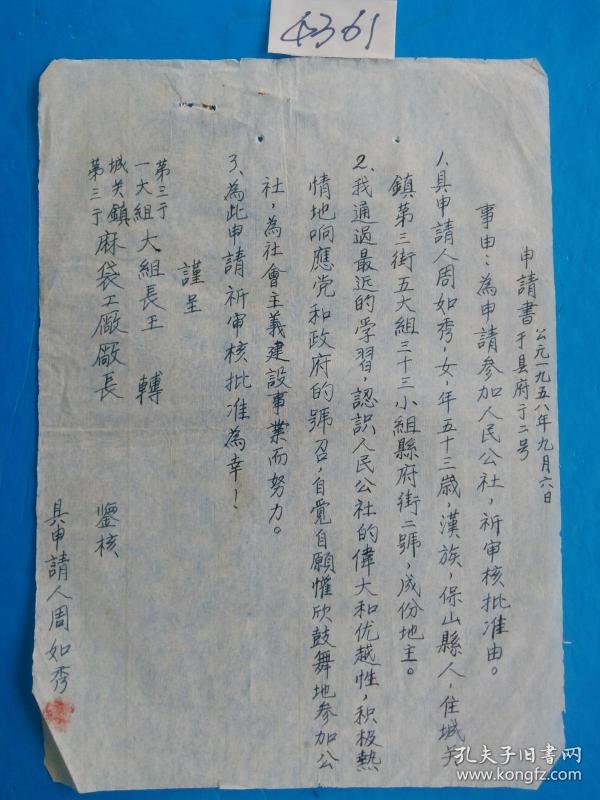 4361
申請書 公元一九五八年九月六日
于县府亍二号
事由：為申請参加人民公社，祈审核批准由。
1、具申請人周如秀，女，年五十三歲，漢族，保山縣人，住城关
鎮第三街五大組三十三小組縣府街二號，成份地主。
2、我通過最近的学習，認識人民公社的偉大和优越性，积极熱
情地响應党和政府的號召，自覺自願懽欣鼓舞地参加公
社，為社會主義建設事業而努力。
3、為此申請祈审核批准為幸！
謹呈
第三亍
一大組大組長王 轉
城关鎮
第三亍麻袋工廠廠長 鑒核
具申請人周如秀
孔夫子旧书网
www.kongfz.com